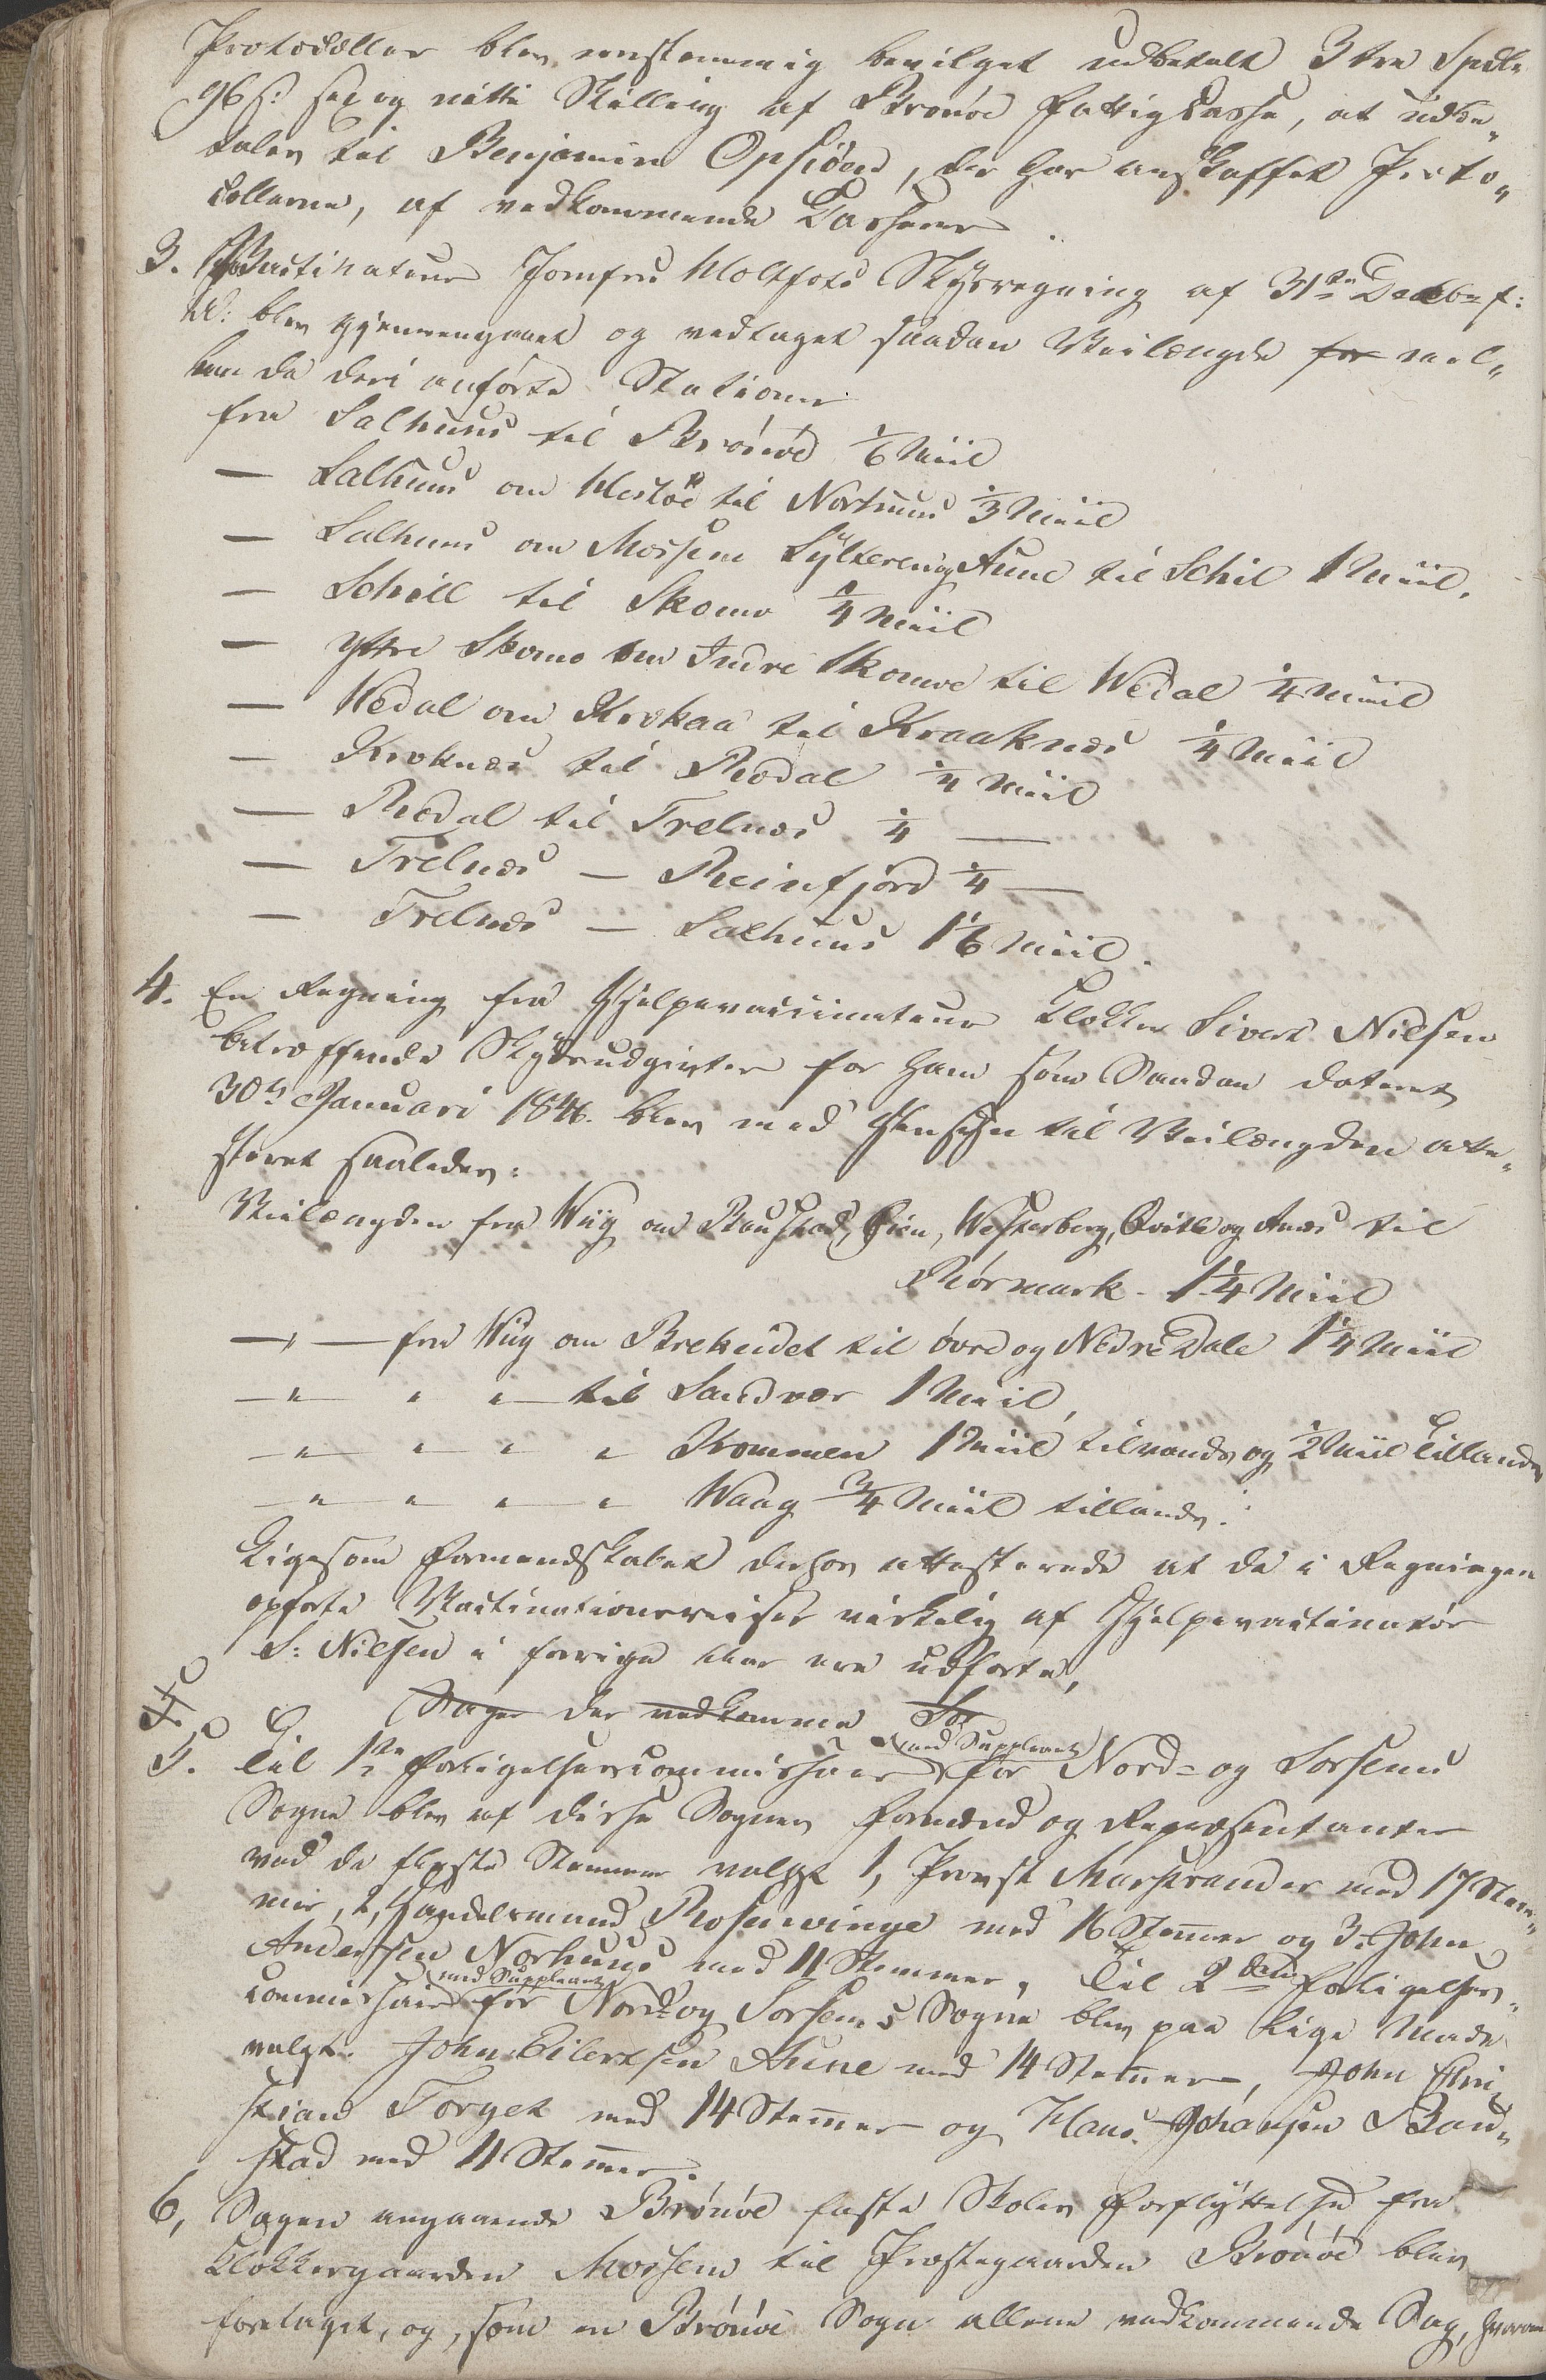 Protocoller blev eenstemmig bevilget udbetalt 3 tre Spdlr
96 s: sex og nitti Skilling af Brønøe Fattigkasse, at udbe„
tales til Benjamin Opsiøen, der har anskaffet Proto„
collerne, af vedkommende Casserer.
3. Vactinateur Jomfru Holtfots Skydsregning af 31te Decbr f:
A: blev gjennemgaaet og vedtaget saadan Veilængde for mel„
lem de deri anførte Stationer
fra Salhuus til Brønøe 1/6 Miil
— Salhuus om Mestøe til Norhuus 1/3 Miil
— Salhuus om Mosem Syltereng Aune til Schil 1 Miil.
— Schill til Skomo 1/4 Miil
— Yttre Skomo om Indre Skomoe til Wedal 1/4 Miil
— Wedal om Krokaa til Kraaknæs 1/4 Miil
— Kroknæs til Rødal 1/4 Miil
— Rødal til Trelnæs 1/4 —
— Trelnæs — Reinfjord 1/4 —
— Trelnæs — Salhuus 1 1/6 Miil.
4. En Regning fra Hjelpevaccinateur Klokker Sivert Nielsen
betræffende Skydsudgivter for ham som Saadan dateret
30te Januari 1846. blev med Hensyn til Veilængden atte„
steret saaledes:
Veilængden fra Wiig om Baustad, Øien, Westerberg, Qvitle og Aunes til
Rörmark - 1 1/4 Miil
—„— fra Wiig om Brekeidet til övre og Nedre Dale 1 1/4 Miil
—„ „ „— til Sandvær 1 Miil,
—„— „ „ „ Kommen 1 Miil tilvands og 1/2 Miil Tillands
—„— „ „ „ Waag 3/4 Miil tillands.
Ligesom Formandskabet derhos attesterede at de i Regningen
opførte Vactinationsreiser virkelig af Hjelpevactinatør
S: Nielsen i forrige Aar ere udførte,
Sager der vedkomme Sø
5. Til 1ste Forligelsescommissair med Suppleant for Nord- og Sørsems
Sogne blev af disse Sognes Formænd og Repræsentanter
ved de fleste Stemmer valgt 1, Provst Marstrander med 17 Stem„
mer, 2, Handelsmand Rosenvinge med 16 Stemmer og 3. John
Anderssen Norhuus med 11 Stemmer, Til 2den Forligelses„
commissair med Suppleant for Nord- og Sørsems Sogne blev paa lige Maade
valgt. John Eilertsen Aune med 14 Stemmer, John Chri„
stian Torget med 14 Stemmer og Hans Johansen Baus„
stad med 11 Stemmer.
6, Sagen angaaende Brønøe faste Skoles Forflyttelse fra
Klokkergaarden Mosem til Præstegaarden Brønøe blev
foretaget, og, som en Brønøe Sogn allene vedkommende Sag, hvorom